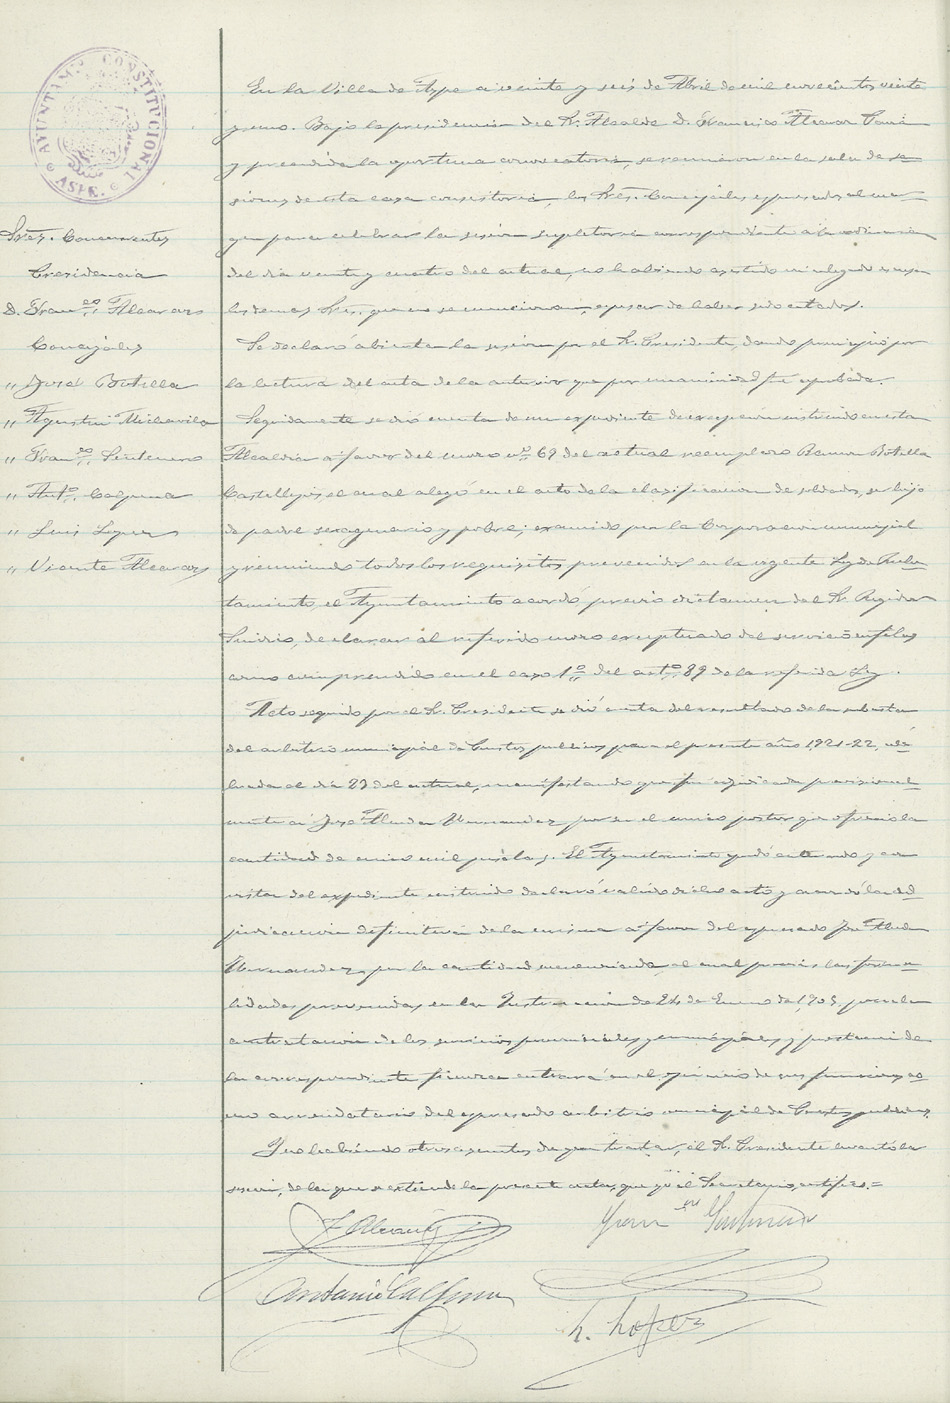 AYUNTAM.º CONSTITUCIONAL
ASPE.
Sres. Concurrentes
Presidencia
D. Fran.co Alcaraz
Concejales
" José Botella
" Agustin Michavila
" Fran.co Senteno
" Ant.o Calpena
" Luis Lopez
" Vicente Alcaraz
En la Villa de Aspe a veinte y seis de Abril de mil novecientos veinte
y uno. Bajo la presidencia del Sr. Alcalde D. Francisco Alcaraz
y precedida la oportuna convocatoria, se reunieron en la sala de se-
siones de esta casa consistorial, los Sres. Concejales expresados al mar-
gen para celebrar la sesión supletoria correspondiente a la ordinaria
del dia veinte y cuatro del actual, no habiendo asistido ni alegado excusa
los demas Sres. que no se mencionan, apesar de haber sido citados.
Se declaró abierta la sesion por el Sr. Presidente, dando principio por
la lectura del acta de la anterior que por unanimidad fue aprobada.
Seguidamente se dió cuenta de un expediente de excepción instruido en esta
Alcaldia a favor del mozo nº 69 del actual reemplazo Ramon Botella
Castellejos el cual alegó en el acto de la clasificacion de soldados, ser hijo
de padre sexagenario y pobre; examinado por la Corporacion municipal
y reuniendo todos los requisitos prevenidos en la vigente Ley de Reclu-
tamiento, el Ayuntamiento acordó previo dictamen del Sr. Regidor
Sindico, declarar al referido mozo exceptuado del servicio en filas
como comprendido en el caso 1º del artº 89 de la referida Ley.
Acto seguido por el Sr. Presidente se dió cuenta del resultado de la subasta
del arbitrio municipal de Puestos publicos para el presente año 1921-22, cele-
brada el dia 23 del actual, manifestando que fue adjudicada provisional-
mente a José Hernandez por ser el unico postor que ofrecio la
cantidad de cinco mil pesetas. El Ayuntamiento quedó enterado y en
vista del expediente instruido declaró valido dicho acto y acordó la ad-
judicacion definitiva de la misma a favor del expresado José
Hernandez, por la cantidad mencionada, el cual previas las forma-
lidades prevenidas en la Instruccion de 24 de Enero de 1905, para la
contratacion de los servicios provinciales y municipales y prestacion de
la correspondiente fianza entrará en el ejercicio de sus funciones co-
mo arrendatario del expresado arbitrio municipal de Puestos publicos.
Y no habiendo otros asuntos de que tratar, el Sr. Presidente levantó la
sesion, de la que se extiende la presente acta, que yo el Secretario, certifico.=
F Alcaraz
Fran.co
Antonio Calpena
L. Lopez